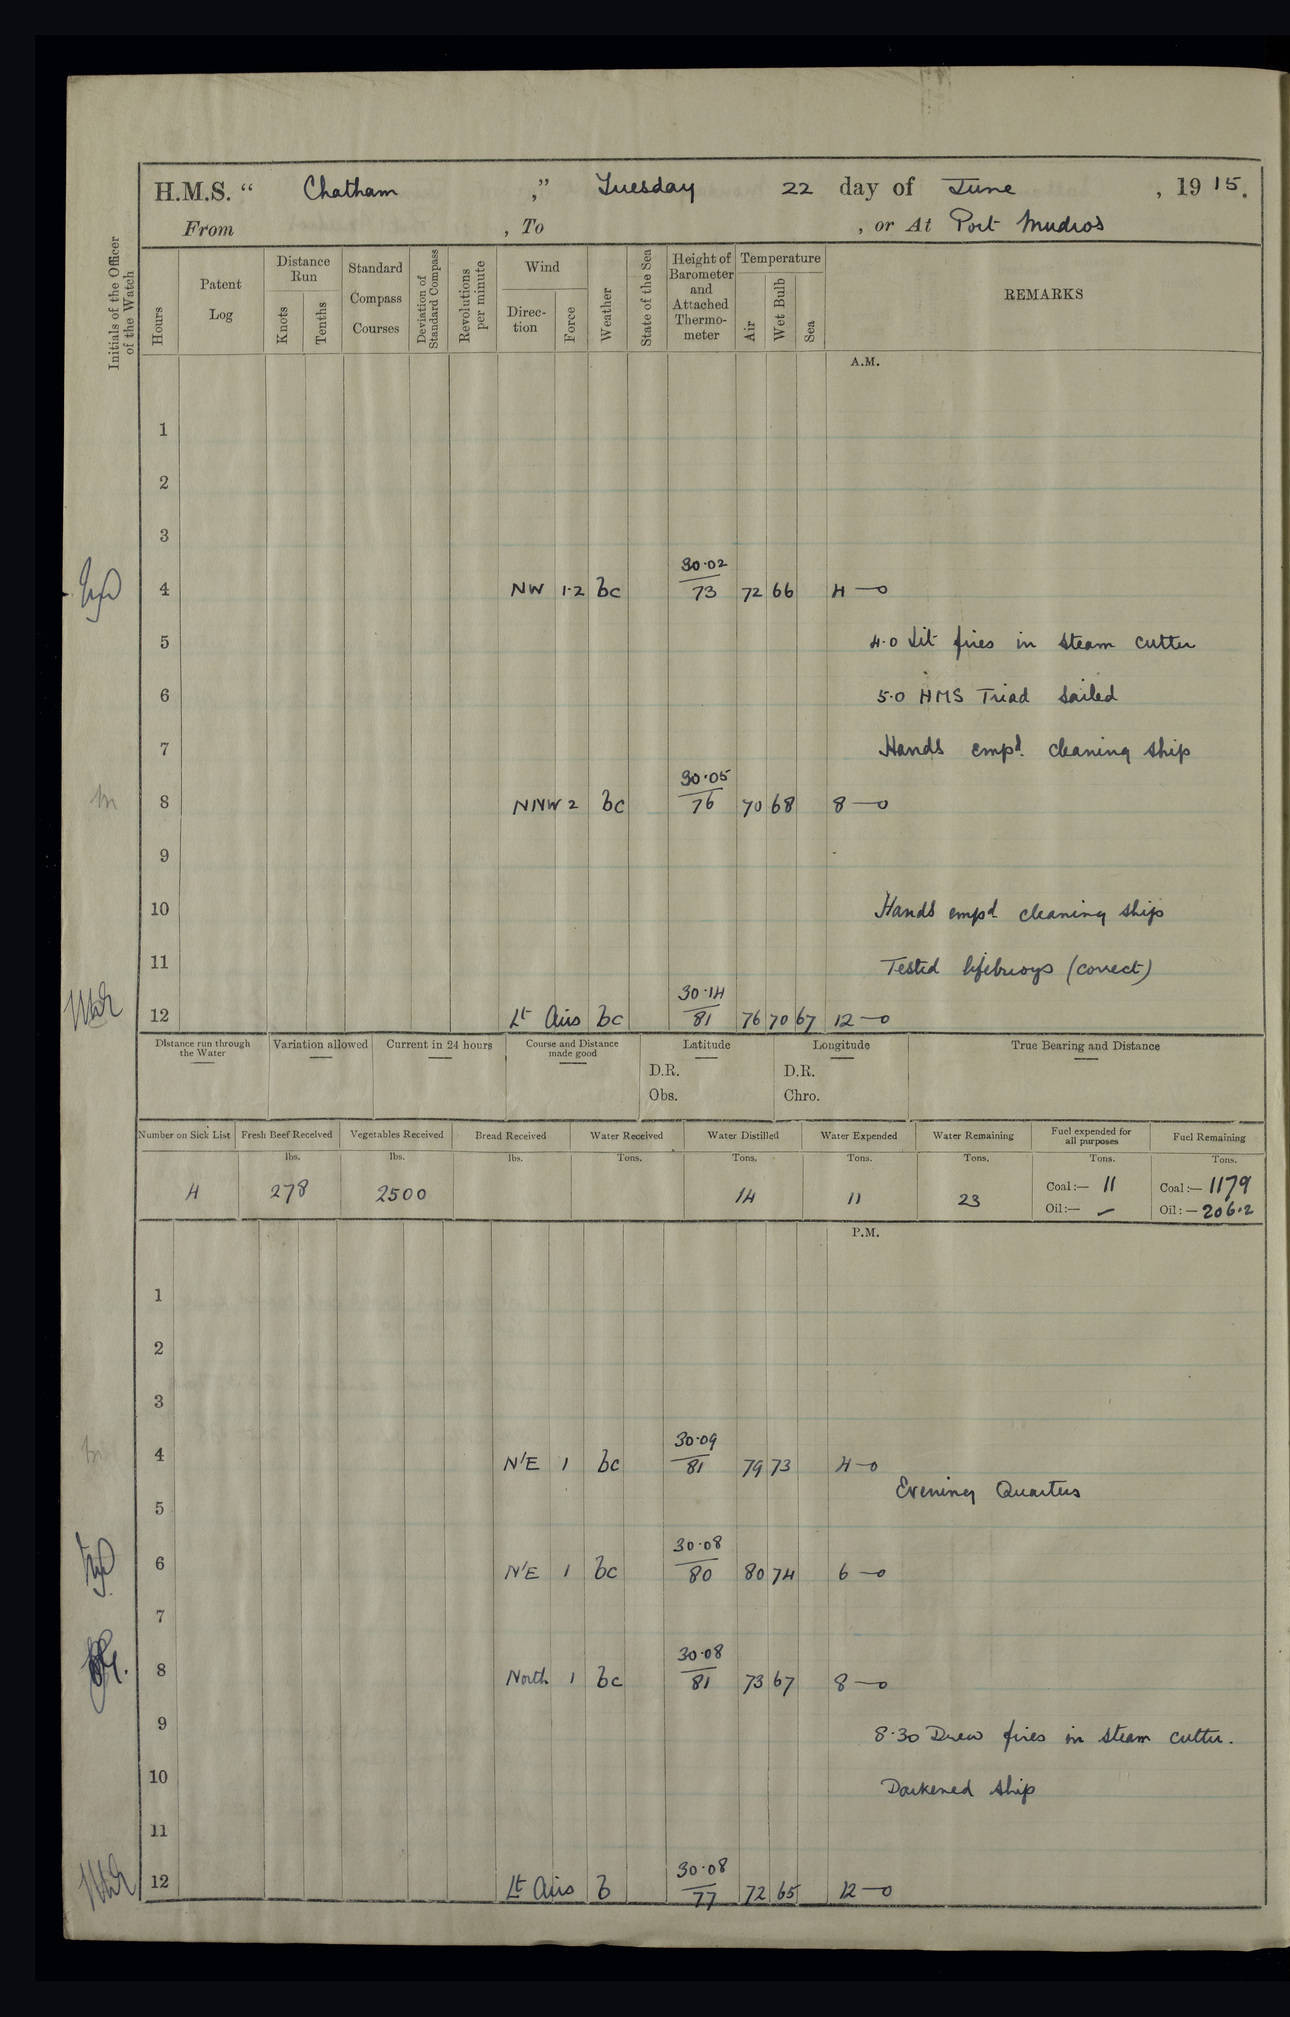 H.M.S. “ Chatham ,” Tuesday 22 day of June , 1915.
From , To , or At Port Mudros
Initials of the Officer of the Watch
Hours
Patent Log
Distance Run
Knots
Tenths
Standard Compass Courses
Deviation of Standard Compass
Revolutions per minute
Wind
Direc-tion
Force
Weather
State of the Sea
Height of Barometer and Attached Thermo-meter
Temperature
Air
Wet Bulb
Sea
REMARKS
A.M.
1
2
3
30.02
4 NW 1.2 bc 73 72 66 4—0
5 4.0 Lit fires in steam cutter
6 5.0 HMS Triad sailed
7 Hands empd. cleaning ship
30.05
8 NNW 2 bc 76 70 68 8—0
9
10 Hands empd cleaning ship
11 Tested lifebuoys (correct)
30.14
12 Lt Airs bc 81 76 70 67 12—0
Distance run through the Water
Variation allowed
Current in 24 hours
Course and Distance made good
Latitude
D.R.
Obs.
Longitude
D.R.
Chro.
True Bearing and Distance
Number on Sick List Fresh Beef Received Vegetables Received Bread Received Water Received Water Distilled Water Expended Water Remaining Fuel expended for all purposes Fuel Remaining
lbs. lbs. lbs. Tons. Tons. Tons. Tons. Tons. Tons.
4 278 2500 14 11 23 Coal:— 11 Coal:— 1179
Oil:— – Oil:— 206.2
P.M.
1
2
3
30.09
4 N'E 1 bc 81 79 73 4—0
Evening Quarters
5
30.08
6 N'E 1 bc 80 80 74 6—0
7
30.08
8 North 1 bc 81 73 67 8—0
9 8.30 Drew fires in steam cutter.
10 Darkened ship
11
30.08
12 Lt Airs b 77 72 65 12—0